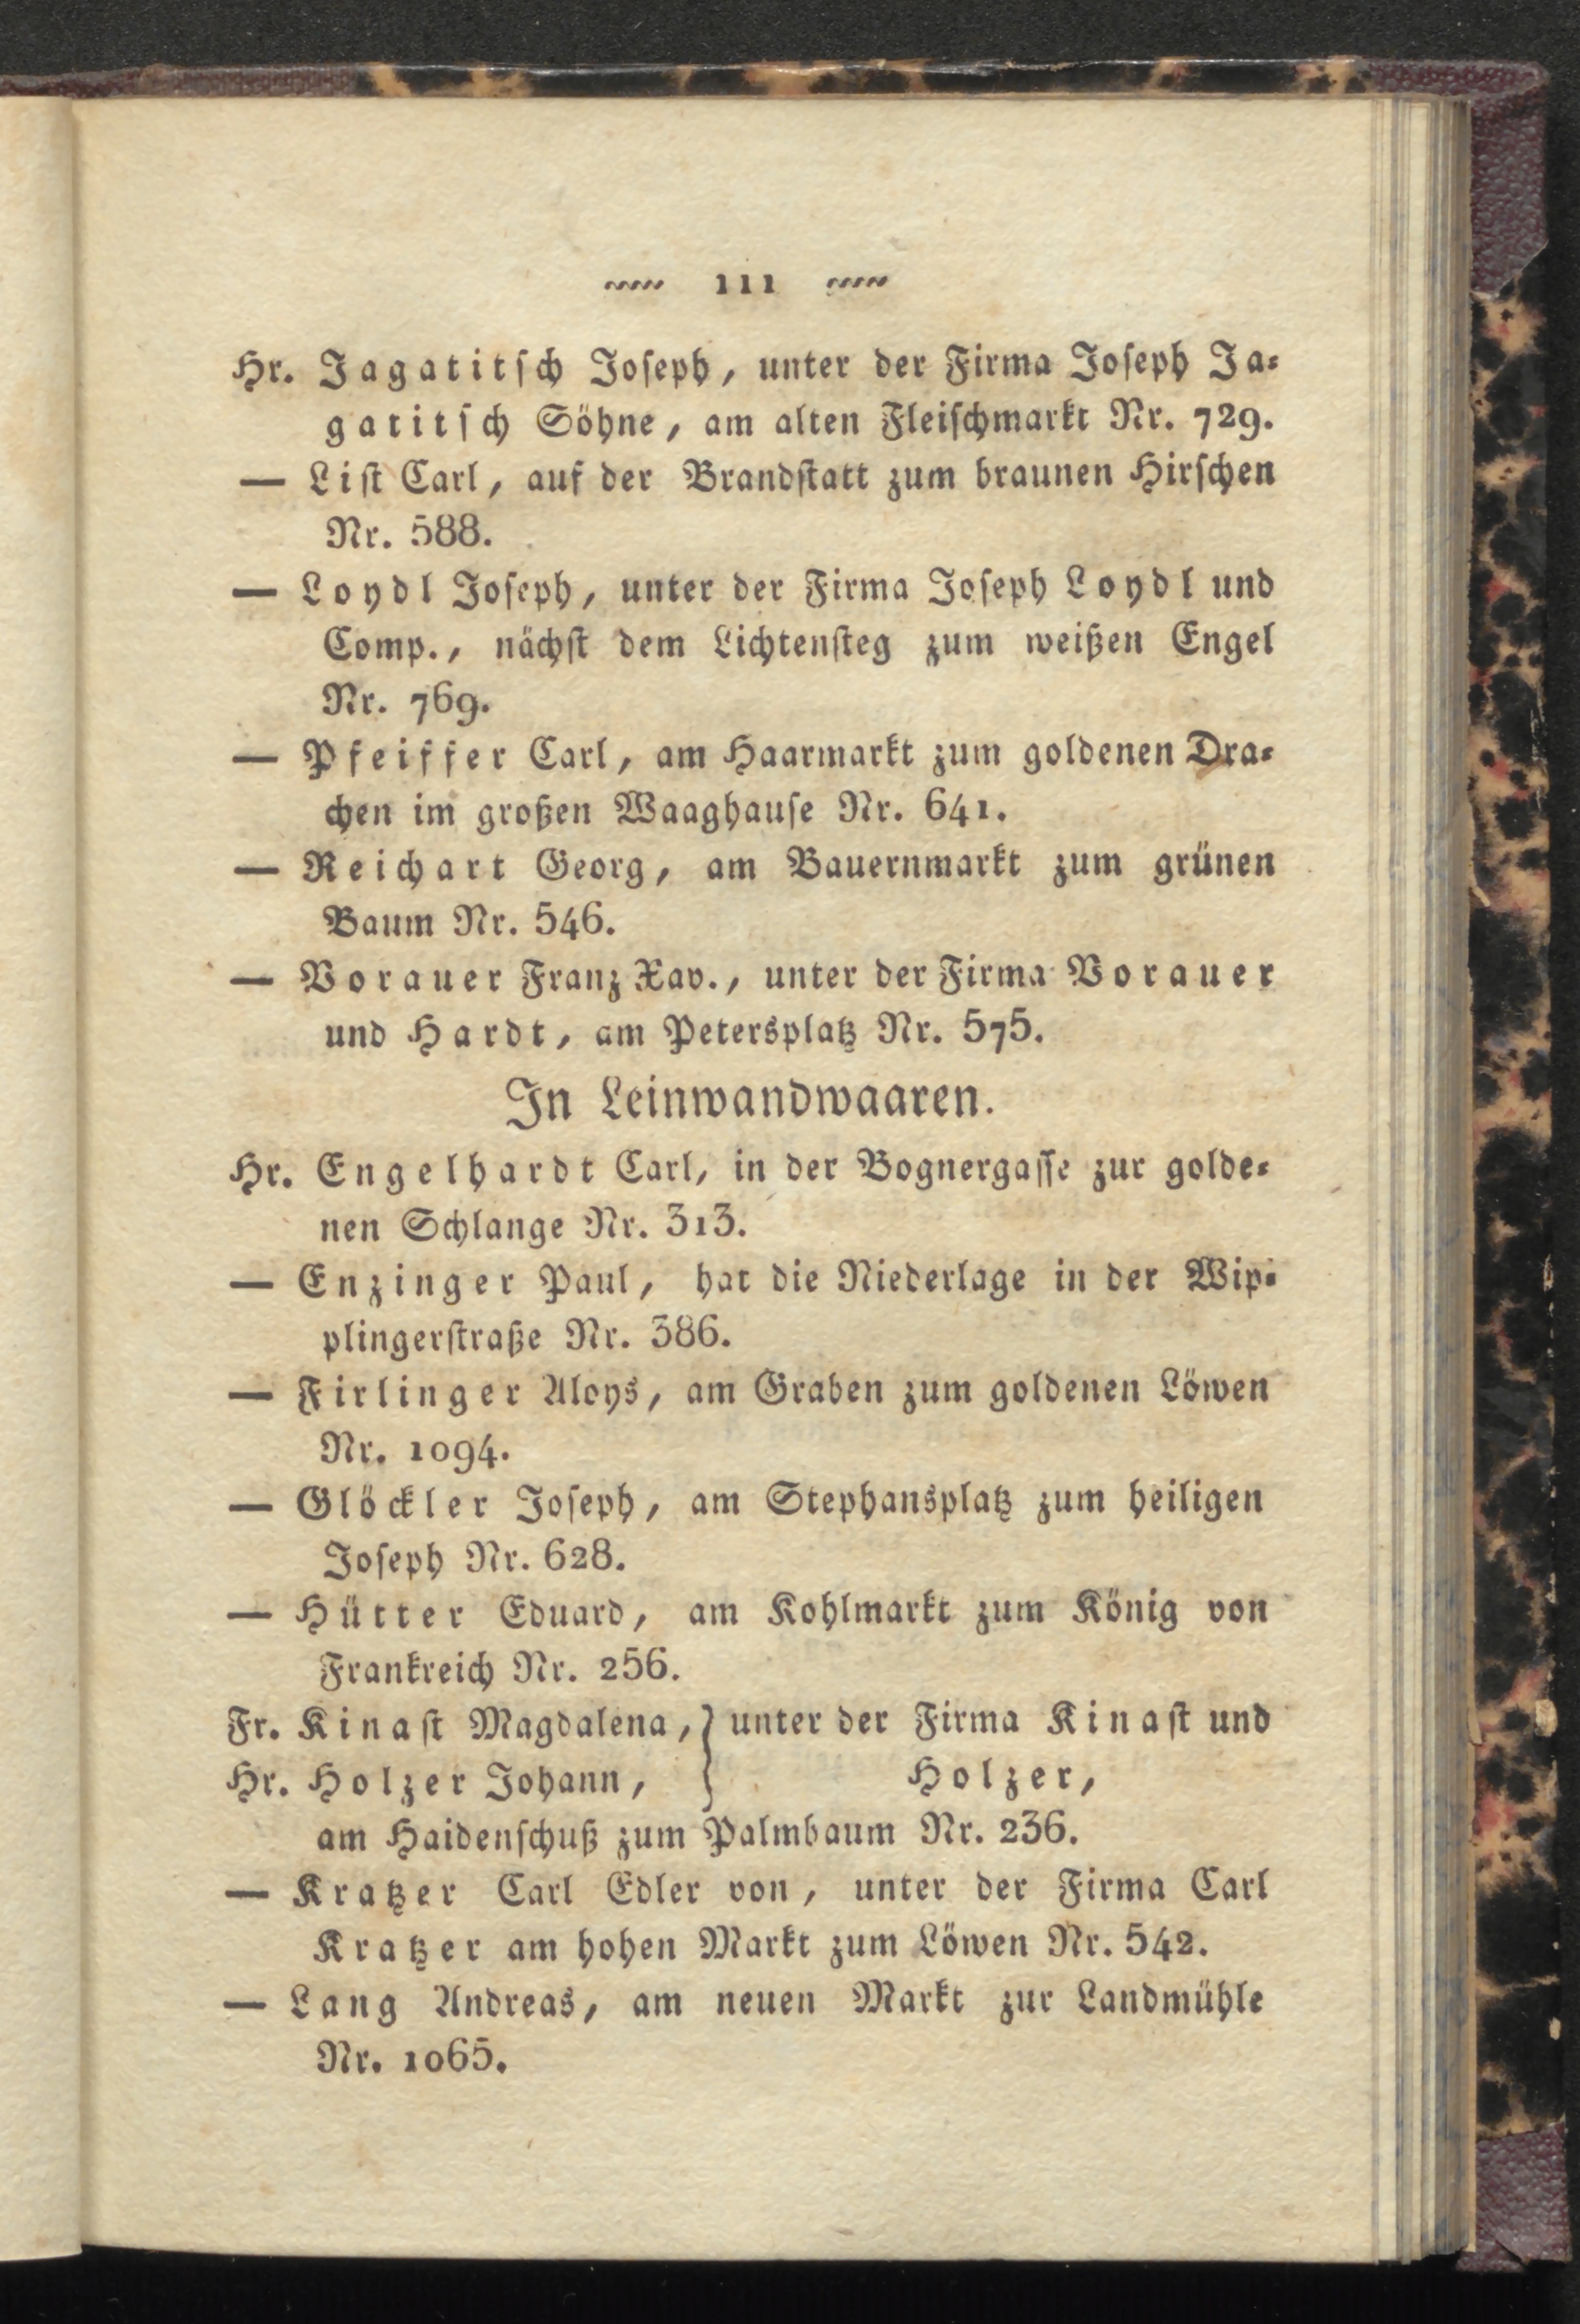 111
Hr. Jagatitsch Joseph, unter der Firma Joseph Ja-
gatitsch Söhne, am alten Fleischmarkt Nr. 729.
— List Carl, auf der Brandstatt zum braunen Hirschen
Nr. 588.
— Loydl Joseph, unter der Firma Joseph Loydl und
Comp., nächst dem Lichtensteg zum weißen Engel
Nr. 769.
— Pfeiffer Carl, am Haarmarkt zum goldenen Dra-
chen im großen Waaghause Nr. 641.
— Reichart Georg, am Bauernmarkt zum grünen
Baum Nr. 546.
— Vorauer Franz Xav., unter der Firma Vorauer
und Hardt, am Petersplatz Nr. 575.
In Leinwandwaaren.
Hr. Engelhardt Carl, in der Bognergasse zur golde-
nen Schlange Nr. 313.
— Enzinger Paul, hat die Niederlage in der Wip-
plingerstraße Nr. 386.
— Firlinger Aloys, am Graben zum goldenen Löwen
Nr. 1094.
— Glöckler Joseph, am Stephansplatz zum heiligen
Joseph Nr. 628.
— Hütter Eduard, am Kohlmarkt zum König von
Frankreich Nr. 256.
Fr. Kinast Magdalena, } unter der Firma Kinast und
Hr. Holzer Johann, } Holzer,
am Haidenschuß zum Palmbaum Nr. 236.
— Kratzer Carl Edler von, unter der Firma Carl
Kratzer am hohen Markt zum Löwen Nr. 542.
— Lang Andreas, am neuen Markt zur Landmühle
Nr. 1065.